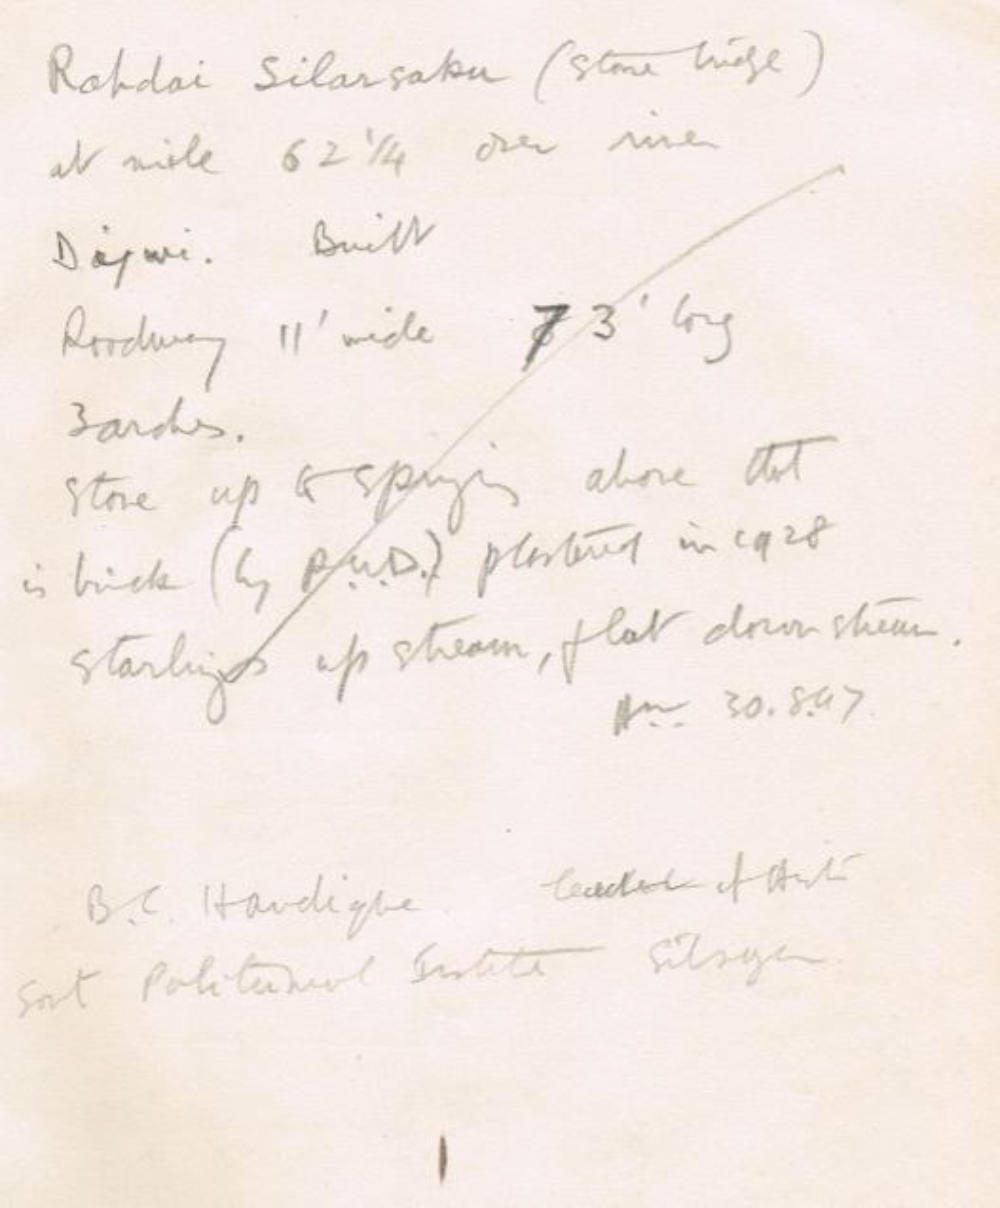 Rahdai Silarsaku (stone bridge)
at mile 62 1/4 over river
Diqwi. Built
Roadway 11' wide 73' long
3 arches.
Stone up to springing above that
is brick (by P.W.D.) plastered in 1928
starlings up stream, flat down stream.
30.8.47.
B.C. Handique of
Govt Institute